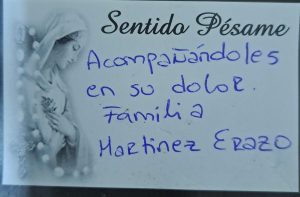 Sentido Pésame
Acompañándoles
en su dolor.
Familia
Martinez Erazo